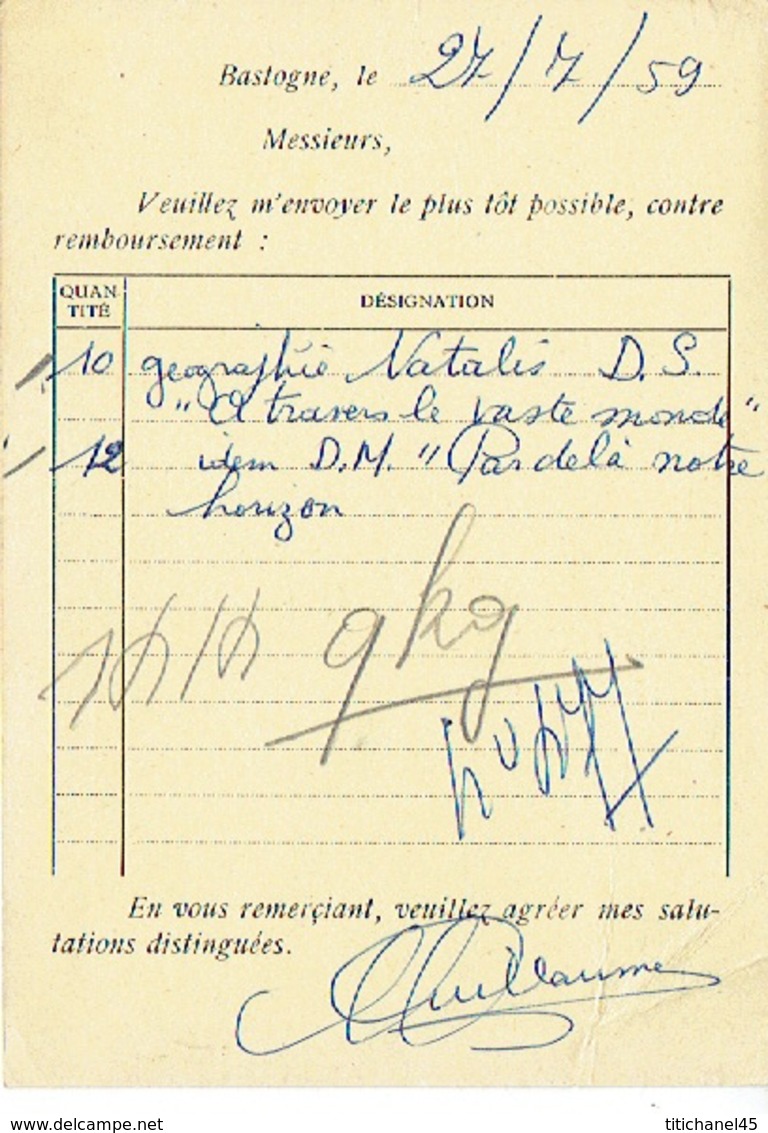 Bastogne, le 27/7/59
Messieurs,
Veuillez m'envoyer le plus tôt possible, contre
remboursement :
QUAN-
TITÉ
DÉSIGNATION
10 géographie Natalis D.S.
"A travers le vaste monde"
12 idem D.M. "Par delà notre
horizon
9 kg
En vous remerçiant, veuillez agréer mes salu-
tations distinguées.
Guillaume
delcampe.net
titichanel45